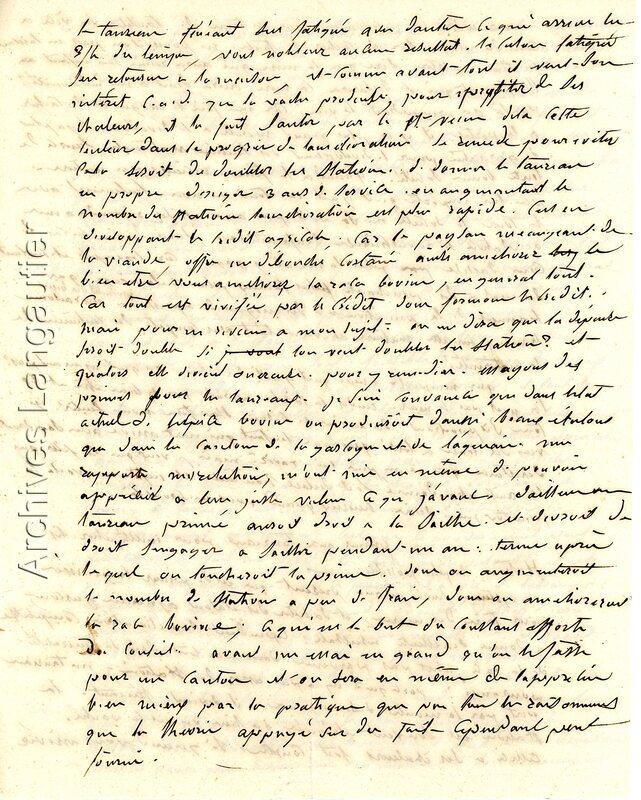 le taureau faisant fatigué que sauter ce qui arrive les
3/4 du temps, vous n'obtenez aucun résultat. le colon fatigué
s'en retourne à la maison, et comme avant tout il veut son
intérêt c.a.d. que la vache produise, pour profiter de ses
chaleurs, il la fait sauter par le 1er venu de la cette
lenteur dans le progrès de l'amélioration. le remède pour éviter
cela seroit de doubler les stations. de donner le taureau
en propre après 3 ans de service. en augmentant le
nombre des stations l'amélioration est plus rapide. C'est en
développant le crédit agricole. Car le paysan mangeant de
la viande, offre un débouché certain ainsi améliorez le
bien etre, vous améliorez la race bovine, en général tout.
Car tout est vivifié par le crédit donc formons le crédit.
mais pour en revenir a mon sujet. on me dira que la dépense
seroit double si l'on veut doubler les stations. et
qu'alors elle devient onéreuse. pour y remédier. essayons des
primes pour les taureaux. je suis convaincu que dans l'état
actuel de l'espèce bovine on produiroit d'aussi beaux étalons
que dans les cantons de la gascogne et de l'agenais. mes
rapports, mes relations, m'ont mis en même de pouvoir
apprécier a leur juste valeur ce que j'avance. d'ailleurs un
taureau primé auroit droit a la saillie. et devroit de
droit s'engager a saillir pendant un an: terme après
lequel on toucheroit la prime. donc on augmenteroit
le nombre de stations a peu de frais, donc on améliorerait
la race bovine; ce qui est le but du constant efforts
du Conseil. avant un essai en grand qu'on le fasse
pour un canton et on sera en même de l'apprécier
bien mieux par la pratique que par tous les raisonnements
que la théorie appuyée sur des faits cependant peut
fournir.
Archives Langautier